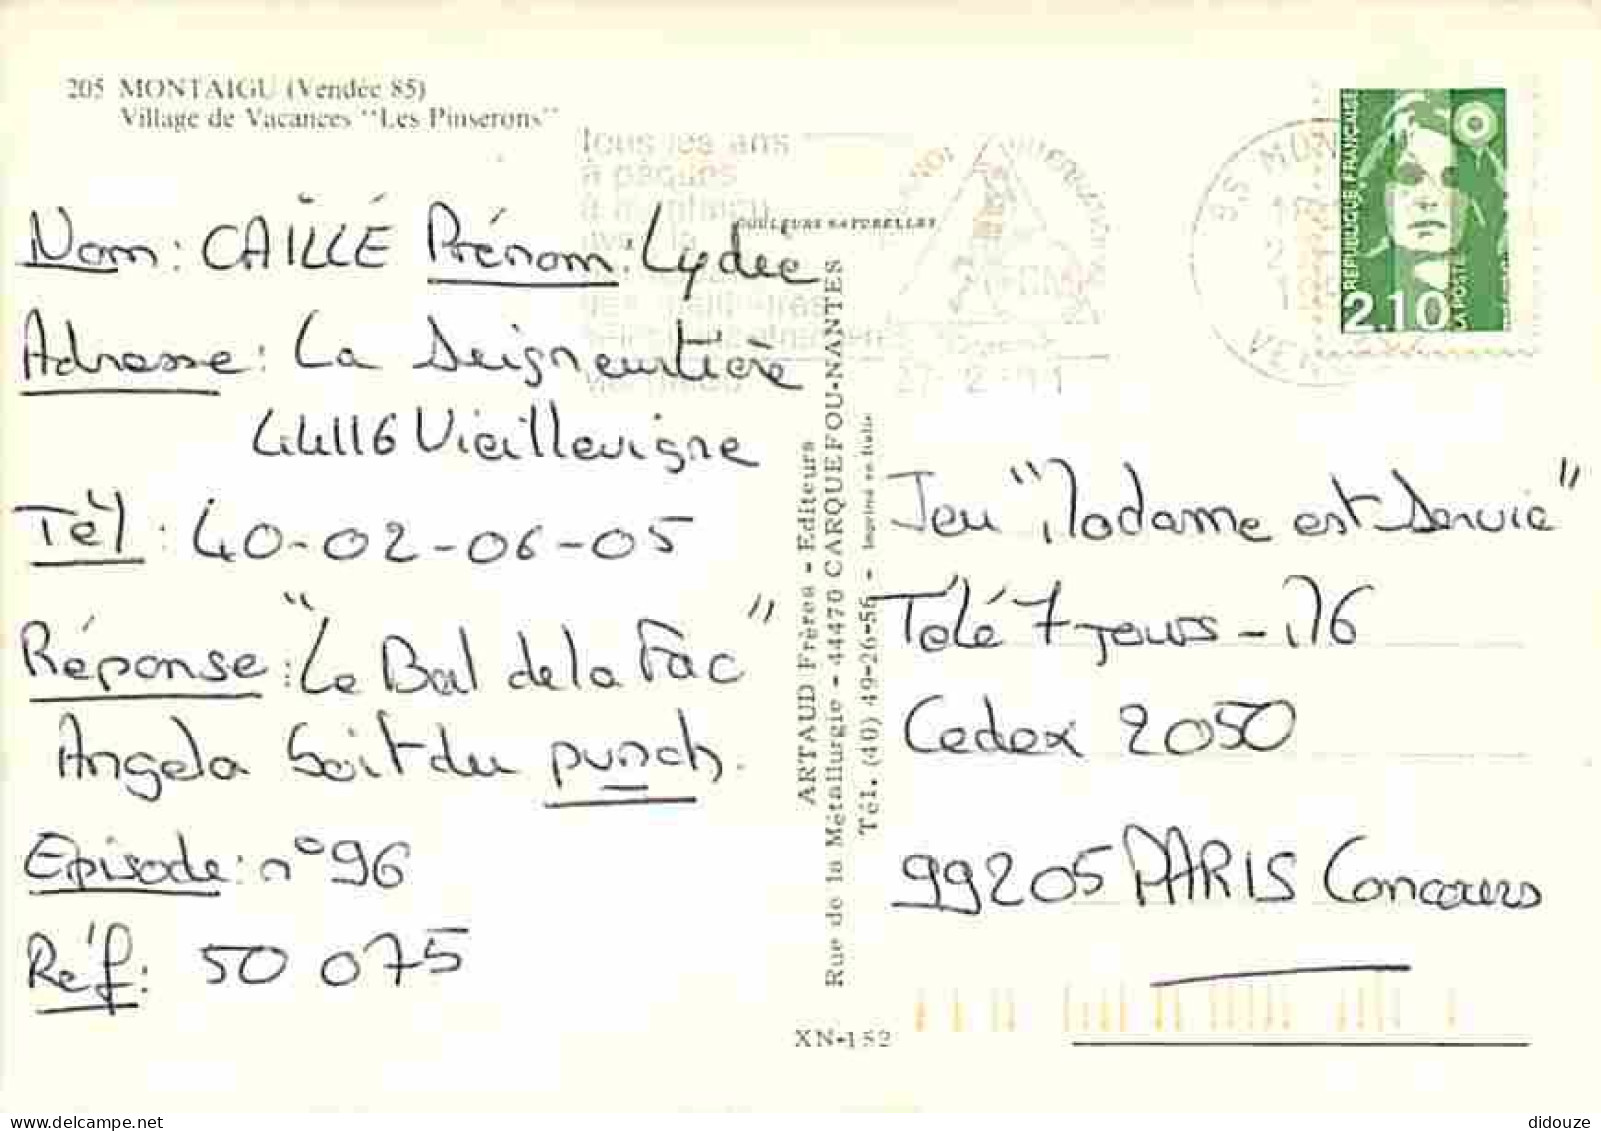 205 MONTAIGU (Vendée 85)
Village de Vacances "Les Pinserons"
tous les ans
à pâques
COULEURS NATURELLES
REPUBLIQUE FRANÇAISE
2,10
LA POSTE
Nom: CAILLÉ Prénom: Lydie
Adresse: La Seigneurtière
44116 Vieillevigne
Tél: 40-02-06-05
Réponse: "Le Bal de la Fac"
Angela boit du punch.
Episode: n°96
Réf: 50 075
ARTAUD Frères - Editeurs
Rue de la Métallurgie - 44470 CARQUEFOU-NANTES
Tél. (40) 49-26-56 - Imprimé en Italie
XN-152
Jeu "Madame est Servie"
Télé 7 jours - 176
Cedex 2050
99205 PARIS Concours
didouze